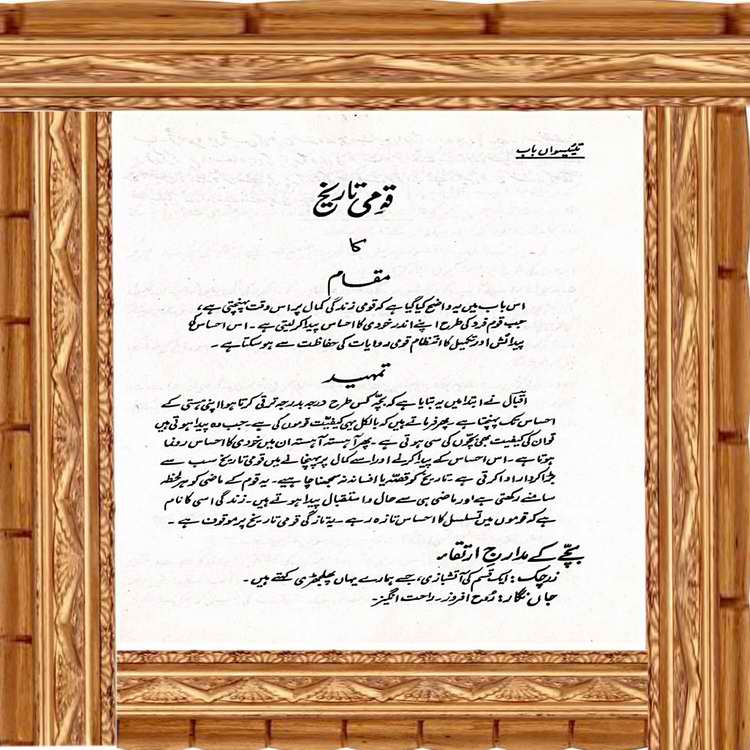 تیئیسواں باب
قومی تاریخ
کا
مقام
اس باب میں یہ واضح کیا گیا ہے کہ قومی زندگی کمال پر اس وقت پہنچتی ہے،
جب قوم فرد کی طرح اپنے اندر خودی کا احساس پیدا کر لیتی ہے۔ اس احساس کا
پیدائش اور تکمیل کا انتظام قومی روایات کی حفاظت سے ہو سکتا ہے۔
تمہید
اقبال نے ابتدا میں یہ بتایا ہے کہ بچہ کس طرح درجہ بدرجہ ترقی کرتا ہوا اپنی ہستی کے
احساس تک پہنچتا ہے۔ پھر فرماتے ہیں کہ بالکل یہی کیفیت قوموں کی ہے۔ جب وہ پیدا ہوتی ہیں
تو ان کی کیفیت بھی بچوں کی سی ہوتی ہے۔ پھر آہستہ آہستہ ان میں خودی کا احساس رونما
ہوتا ہے۔ اس احساس کے پیدا کرنے اور اسے کمال پر پہنچانے میں قومی تاریخ سب سے
بڑا کردار ادا کرتی ہے۔ تاریخ کو قصہ یا افسانہ نہ سمجھنا چاہیے۔ یہ قوم کے ماضی کو ہر لحظہ
سامنے رکھتی ہے اور ماضی ہی سے حال و استقبال پیدا ہوتے ہیں۔ زندگی اسی کا نام
ہے کہ قوموں میں تسلسل کا احساس تازہ رہے۔ یہ تازگی قومی تاریخ پر موقوف ہے۔
بچے کے مدارج ارتقاء
زرچک: ایک قسم کی آتشبازی، جسے ہمارے یہاں پھلجھڑی کہتے ہیں۔
جاں نگار: رُوح افروز۔ راحت انگیز۔